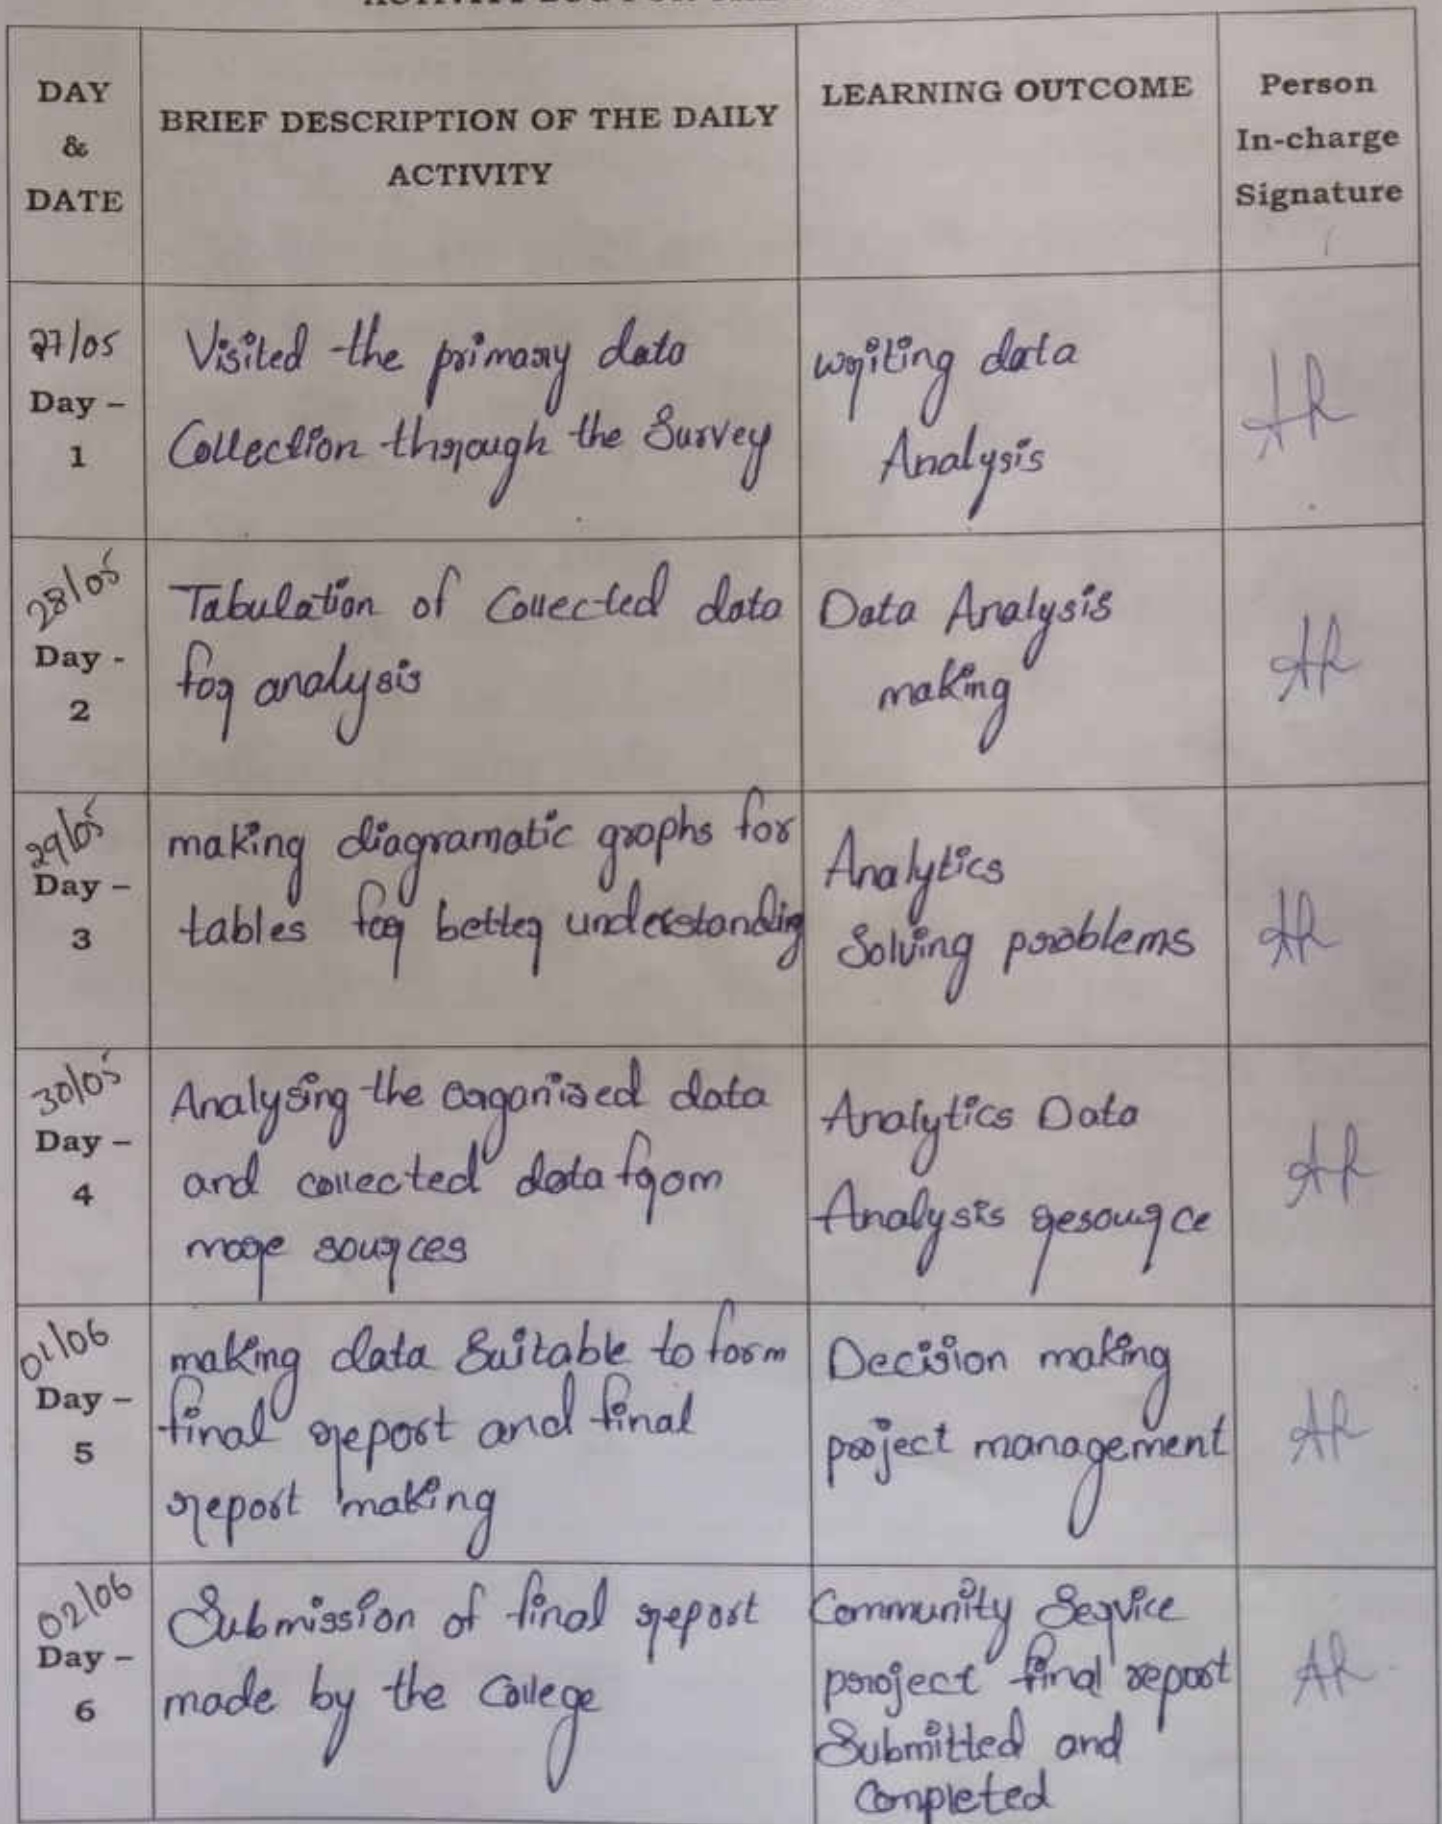 DAY
&
DATE
BRIEF DESCRIPTION OF THE DAILY
ACTIVITY
LEARNING OUTCOME
Person
In-charge
Signature
27/05
Day –
1
Visited the primary data
Collection through the Survey
writing data
Analysis
28/05
Day -
2
Tabulation of Collected data
for analysis
Data Analysis
making
29/05
Day –
3
making diagramatic graphs for
tables for better understanding
Analytics
Solving problems
30/05
Day –
4
Analysing the organised data
and collected data from
more sources
Analytics Data
Analysis resource
01/06
Day –
5
making data Suitable to form
final report and final
report making
Decision making
project management
02/06
Day –
6
Submission of final report
made by the College
Community Service
project final report
Submitted and
Completed